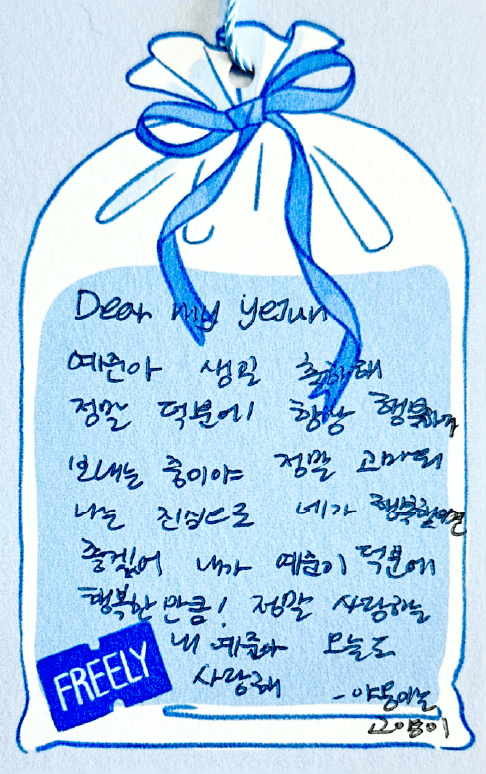 Dear my yejun
예준아 생일 축하해
정말 덕분에 항상 행복하게
보내는 중이야 정말 고마워
나는 진심으로 네가 행복했으면
좋겠어 내가 예준이 덕분에
행복한 만큼! 정말 사랑하는
내 예준아 오늘도
사랑해
FREELY
고양이